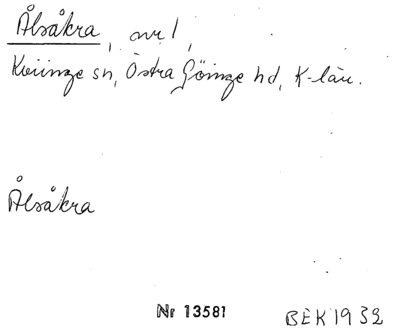 Ålsåkra, nr 1,
Kviinge sn, Östra Göinge hd, K-län.
Ålsåkra
Nr 13581
BEK 1932